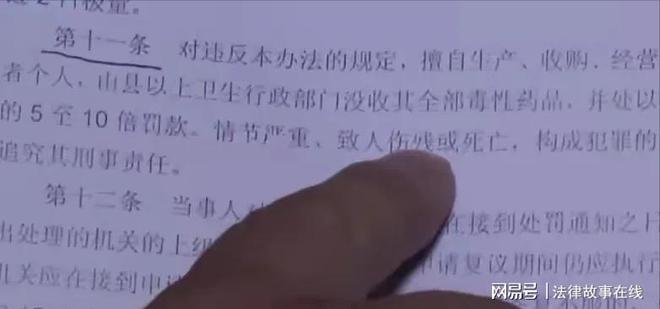 2日极量。
第十一条 对违反本办法的规定，擅自生产、收购、经营
者个人，由县以上卫生行政部门没收其全部毒性药品，并处以
的5至10倍罚款。情节严重、致人伤残或死亡，构成犯罪的
追究其刑事责任。
第十二条 当事人对 在接到处罚通知之
出处理的机关的上级 申请复议期间仍应执行
机关应在接到申
网易号 | 法律故事在线